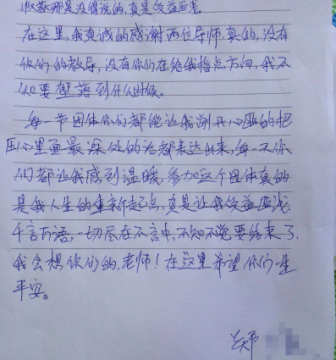 收获那是没得说的,真是受益匪浅。
在这里,我真诚的感谢两位导师,真的,没有
你们的教导,没有你们在给我指点方向,我不
知要堕落到什么时候。
每一节团体你们都能让我敞开心扉的把
压心里面最深处的话都表达出来,每一天你
们都让我感到温暖,参加这个团体真的
是我人生的重新起点,真是让我受益匪浅
千言万语,一切尽在不言中,不知不觉要结束了,
我会想你们的,老师!在这里希望你们一生
平安。